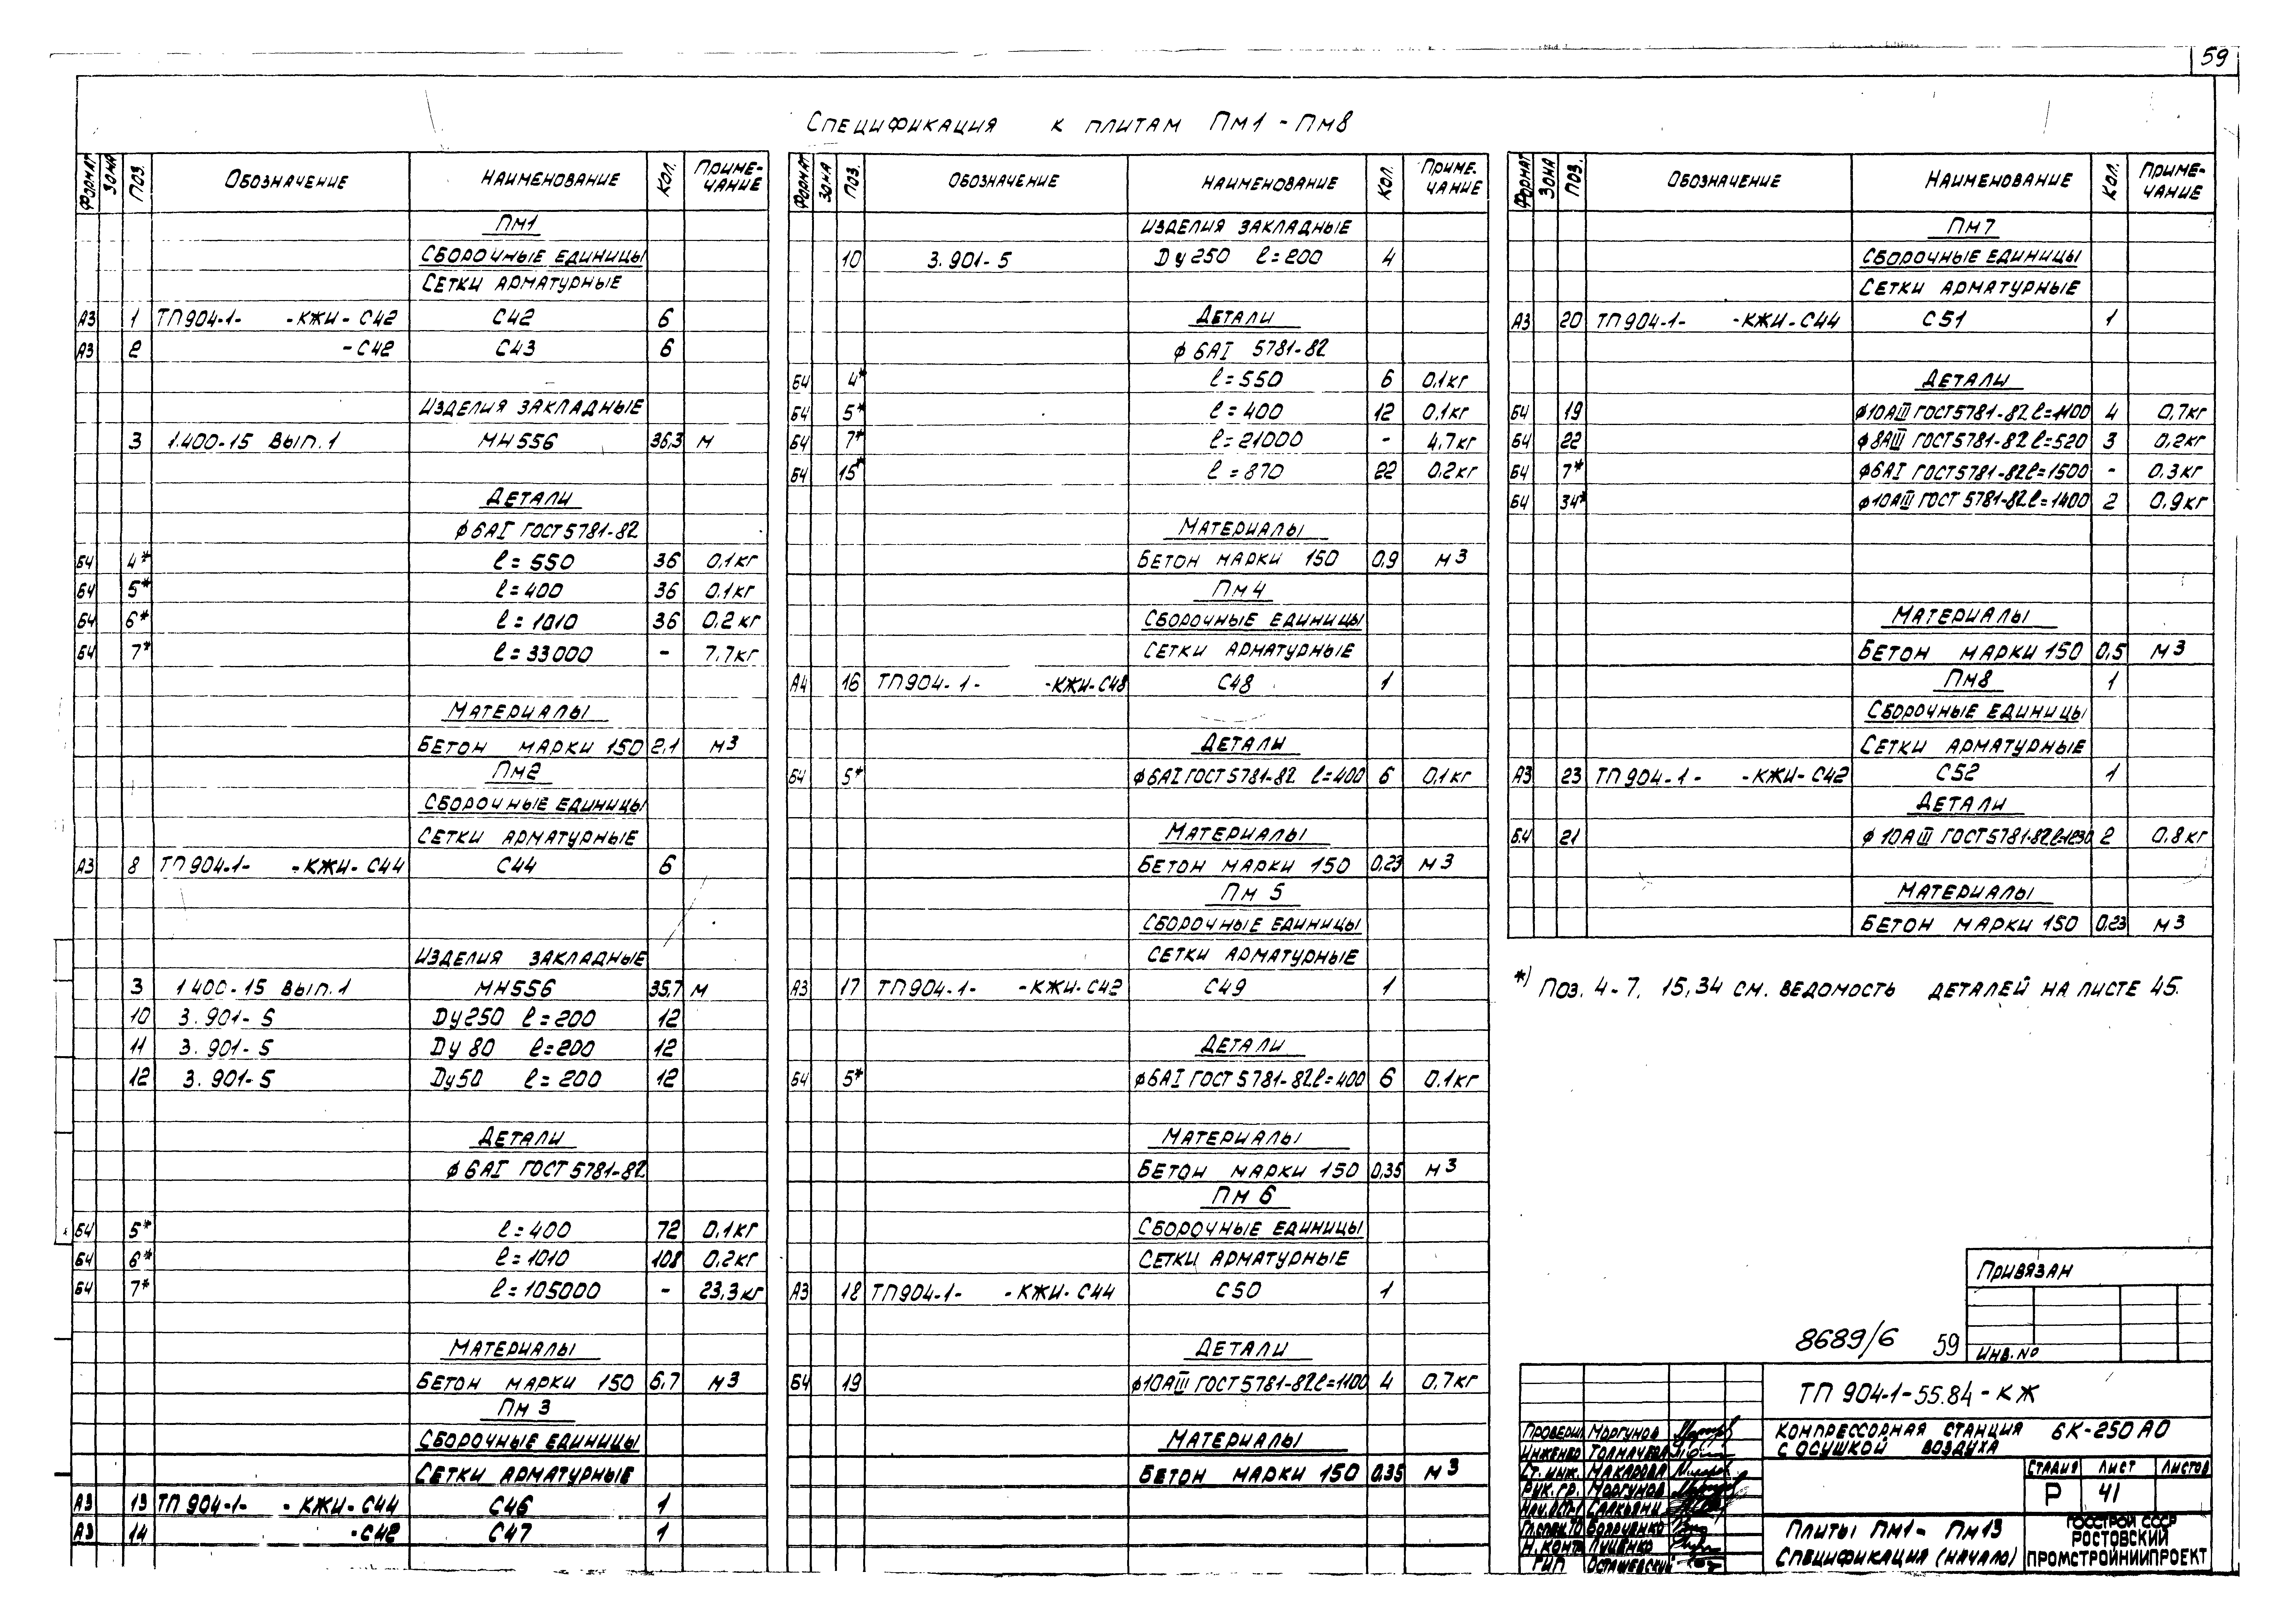 59
Спецификация к плитам Пм1 - Пм8
Формат Зона Поз. Обозначение Наименование Кол. Приме-чание
Пм1
Сборочные единицы
Сетки арматурные
А3 1 ТП904-1- -КЖИ-С42 С42 6
А3 2 -С42 С43 6
Изделия закладные
3 1.400-15 Вып.1 МН556 36,3 м
Детали
ϕ6АI ГОСТ5781-82
БЧ 4* ℓ=550 36 0,1кг
БЧ 5* ℓ=400 36 0.1кг
БЧ 6* ℓ=1010 36 0,2кг
БЧ 7* ℓ=33000 - 7,7кг
Материалы
Бетон марки 150 2,1 м3
Пм2
Сборочные единицы
Сетки арматурные
А3 8 ТП904-1- -КЖИ-С44 С44 6
Изделия закладные
3 1400-15 Вып.1 МН556 35,7 м
10 3.901-5 Dу250 ℓ=200 12
11 3.901-5 Dу80 ℓ=200 12
12 3.901-5 Dу50 ℓ=200 12
Детали
ϕ6АI ГОСТ5781-82
БЧ 5* ℓ=400 72 0,1кг
БЧ 6* ℓ=1010 108 0,2кг
БЧ 7* ℓ=105000 - 23,3кг
Материалы
Бетон марки 150 6,7 м3
Пм3
Сборочные единицы
Сетки арматурные
А3 13 ТП904-1- -КЖИ-С44 С46 1
А3 14 -С42 С47 1
Формат Зона Поз. Обозначение Наименование Кол. Приме-чание
Изделия закладные
10 3.901-5 Dу250 ℓ=200 4
Детали
ϕ6АI 5781-82
БЧ 4* ℓ=550 6 0,1кг
БЧ 5* ℓ=400 12 0,1кг
БЧ 7* ℓ=21000 - 4,7кг
БЧ 15* ℓ=870 22 0,2кг
Материалы
Бетон марки 150 0,9 м3
Пм4
Сборочные единицы
Сетки арматурные
А4 16 ТП904-1- -КЖИ-С48 С48 1
Детали
БЧ 5* ϕ6АI ГОСТ5781-82 ℓ=400 6 0,1кг
Материалы
Бетон марки 150 0,23 м3
Пм5
Сборочные единицы
Сетки арматурные
А3 17 ТП904-1- -КЖИ-С42 С49 1
Детали
БЧ 5* ϕ6АI ГОСТ5781-82 ℓ=400 6 0.1кг
Материалы
Бетон марки 150 0,35 м3
Пм6
Сборочные единицы
Сетки арматурные
А3 18 ТП904-1- -КЖИ-С44 С50 1
Детали
БЧ 19 ϕ10АIII ГОСТ5781-82 ℓ=1100 4 0,7кг
Материалы
Бетон марки 150 0,35 м3
Формат Зона Поз. Обозначение Наименование Кол. Приме-чание
Пм7
Сборочные единицы
Сетки арматурные
А3 20 ТП904-1- -КЖИ-С44 С51 1
Детали
БЧ 19 ϕ10АIII ГОСТ5781-82 ℓ=1100 4 0,7кг
БЧ 22 ϕ8АIII ГОСТ5781-82 ℓ=520 3 0,2кг
БЧ 7* ϕ6АI ГОСТ5781-82 ℓ=1500 - 0.3кг
БЧ 34* ϕ10АIII ГОСТ5781-82 ℓ=1400 2 0,9кг
Материалы
Бетон марки 150 0,5 м3
Пм8 1
Сборочные единицы
Сетки арматурные
А3 23 ТП904-1- -КЖИ-С42 С52 1
Детали
Б.Ч 21 ϕ10АIII ГОСТ5781-82 ℓ=1230 2 0,8кг
Материалы
Бетон марки 150 0,23 м3
*) Поз. 4-7, 15,34 см. ведомость деталей на листе 45.
Привязан
Инв.№
8689/6 59
ТП 904-1-55.84-КЖ
Компрессорная станция 6К-250АО
с осушкой воздуха
Проверил Моргунов
Инженер Толмачева
Ст. инж. Макарова
Рук. гр. Моргунов
Нач.ОСП-1
Н. конт. Луценко
ГИП Осташевский
Стадия Лист Листов
Р 41
Плиты Пм1 - Пм13
Спецификация (начало)
Госстрой СССР
Ростовский
Промстройниипроект